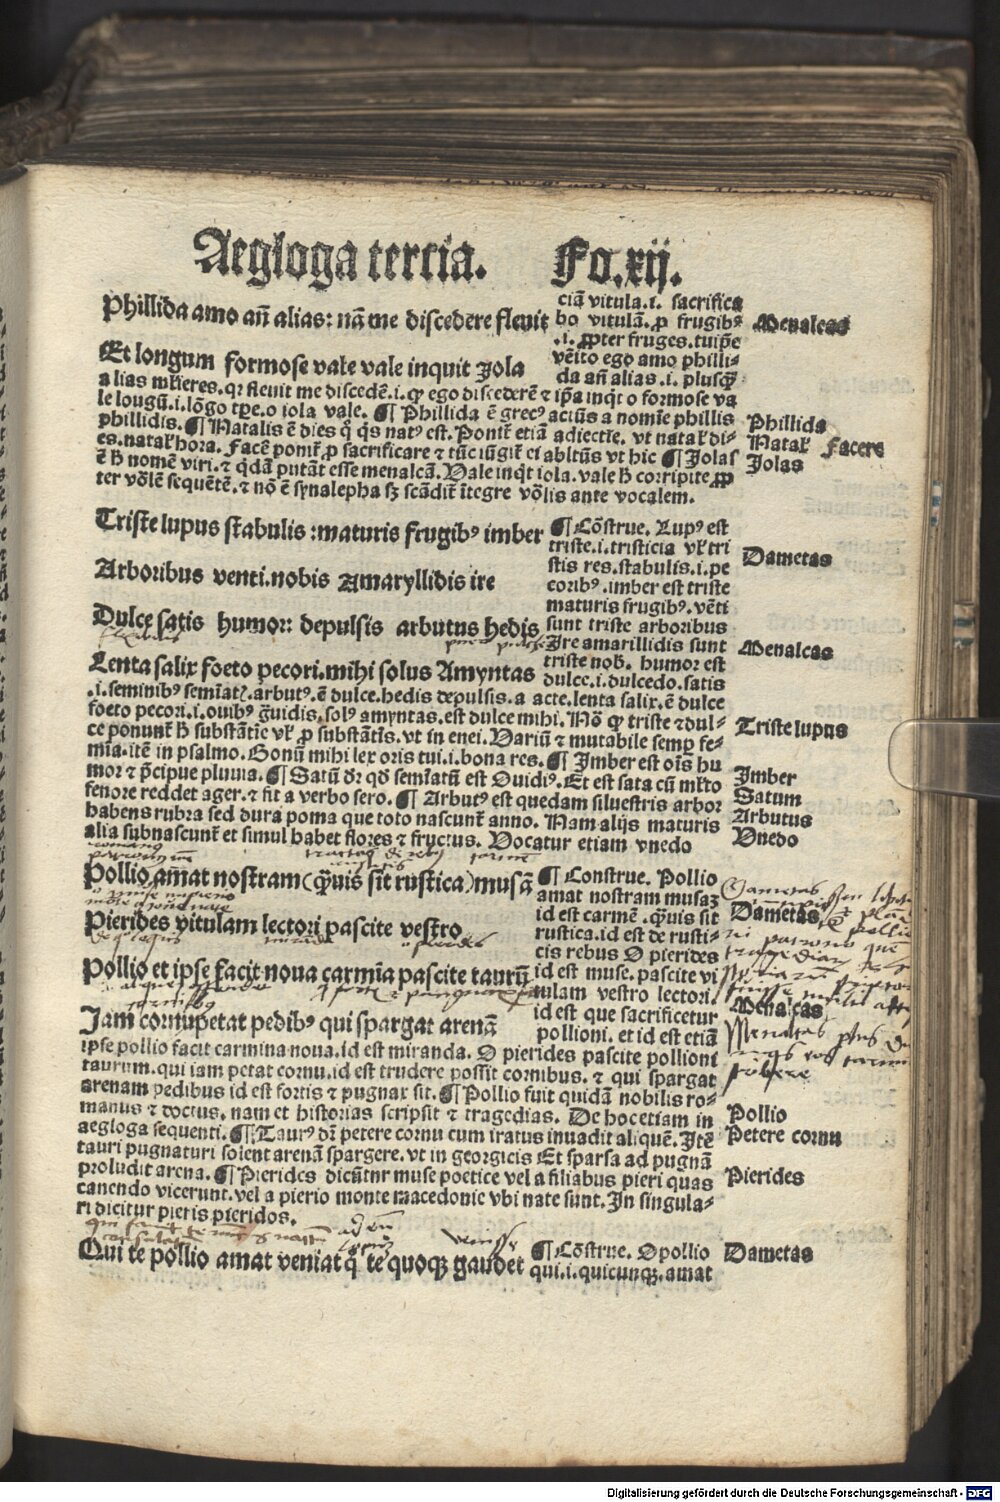 Aegloga tercia. Fo.xij.
Phillida amo añ alias: nã me discedere fleuit
ciã vitula.i. sacrifica
bo vitulã. ꝓ frugibꝰ
.i. ꝓpter fruges. tu ip̃e
vẽito ego amo philli-
da añ alias .i. plusꝙ̃
Menalcas
Et longum formose vale vale inquit Jola
alias ml̃ieres. qꝛ fleuit me discedẽ.i. ꝙ ego discederẽ ⁊ ip̃a inqt o formose va
le longũ.i. lõgo tꝑe. o iola vale. ¶ Phillida ẽ grecꝰ actiũs a nomĩe phillis
phillidis. ¶ Natalis ẽ dies q̊ q̇s natꝰ est. Ponit̃ etiã adiectĩe. vt natal̃ di-
es. natal̃ hora. Facẽ ponit̃ ꝓ sacrificare ⁊ tũc iũgit̃ ei abltũs vt hic ¶ Jolas
ẽ h̃ nomẽ viri. ⁊ q̇dã putãt esse menalcã. Vale inq̇t iola. vale h̃ corripite ꝓp
ter võlẽ sequẽtẽ. ⁊ nõ ẽ synalepha sꝫ scãdit̃ ĩtegre võlis ante vocalem.
Phillida
Natal̃ Facere
Jolas
Triste lupus stabulis : maturis frugibꝰ imber
Arboribus venti. nobis Amaryllidis ire
Dulce satis humor: depulsis arbutus hedis
Lenta salix foeto pecori. mihi solus Amyntas
¶ Cõstrue. Lupꝰ est
triste.i. tristicia vl̃ tri
stis res. stabulis.i. pe
coribꝰ. imber est triste
maturis frugibꝰ. vẽti
sunt triste arboribus
Jre amarillidis sunt
triste nob̃. humor est
dulce.i. dulcedo. satis
Dametas
Menalcas
.i. seminibꝰ semĩatꝭ. arbutꝰ. ẽ dulce. hedis depulsis. a acte. lenta salix. ẽ dulce
foeto pecori.i. ouibꝰ g̃uidis. solꝰ amyntas. est dulce mihi. Nõ ꝙ triste ⁊ dul-
ce ponunt̃ h̃ substãtie vl̃ ꝓ substãtĩs. vt in enei. Variũ ⁊ mutabile semꝑ fe-
mĩa. itẽ in psalmo. Bonũ mihi lex oris tui.i. bona res. ¶ Jmber est oĩs hu
mor ⁊ p̃cipue pluuia. ¶ Satũ dr̃ qd̃ semĩatũ est Ouidiꝰ. Et est sata cũ ml̃to
fenore reddet ager. ⁊ fit a verbo sero. ¶ Arbutꝰ est quedam siluestris arbor
habens rubra sed dura poma que toto nascunt̃ anno. Nam alijs maturis
alia subnascunt̃ et simul habet flores ⁊ fructus. Vocatur etiam vnedo
Triste lupus
Jmber
Satum
Arbutus
Vnedo
Pollio amat nostram (q̃uis sit rustica) musã
Pierides vitulam lectori pascite vestro
Pollio et ipse facit noua carmĩa pascite taurũ
Jam cornupetat pedibꝰ qui spargat arenã
¶ Construe. Pollio
amat nostram musaꝫ
id est carmẽ. q̃uis sit
rustica. id est de rusti-
cis rebus O pierides
id est muse. pascite vi
tulam vestro lectori.
id est que sacrificetur
pollioni. et id est etiã
Dametas
Menalcas
ipse pollio facit carmina noua. id est miranda. O pierides pascite pollioni
taurum. qui iam petat cornu. id est trudere possit cornibus. ⁊ qui spargat
arenam pedibus id est fortis ⁊ pugnax sit. ¶ Pollio fuit quidã nobilis ro-
manus ⁊ doctus. nam et historias scripsit ⁊ tragedias. De hoc etiam in
aegloga sequenti. ¶ Taurꝰ dr̃ petere cornu cum iratus inuadit aliquẽ. Jtẽ
tauri pugnaturi solent arenã spargere. vt in georgicis Et sparsa ad pugnã
proludit arena. ¶ Pierides dicũtur muse poetice vel a filiabus pieri quas
canendo vicerunt. vel a pierio monte macedonie vbi nate sunt. Jn singula-
ri dicitur pieris pieridos.
Pollio
Petere cornu
Pierides
Qui te pollio amat veniat q̊ te quoqꝫ gaudet
¶ Cõstrue. O pollio
qui.i. quicunqꝫ. amat
Dametas
Digitalisierung gefördert durch die Deutsche Forschungsgemeinschaft - DFG